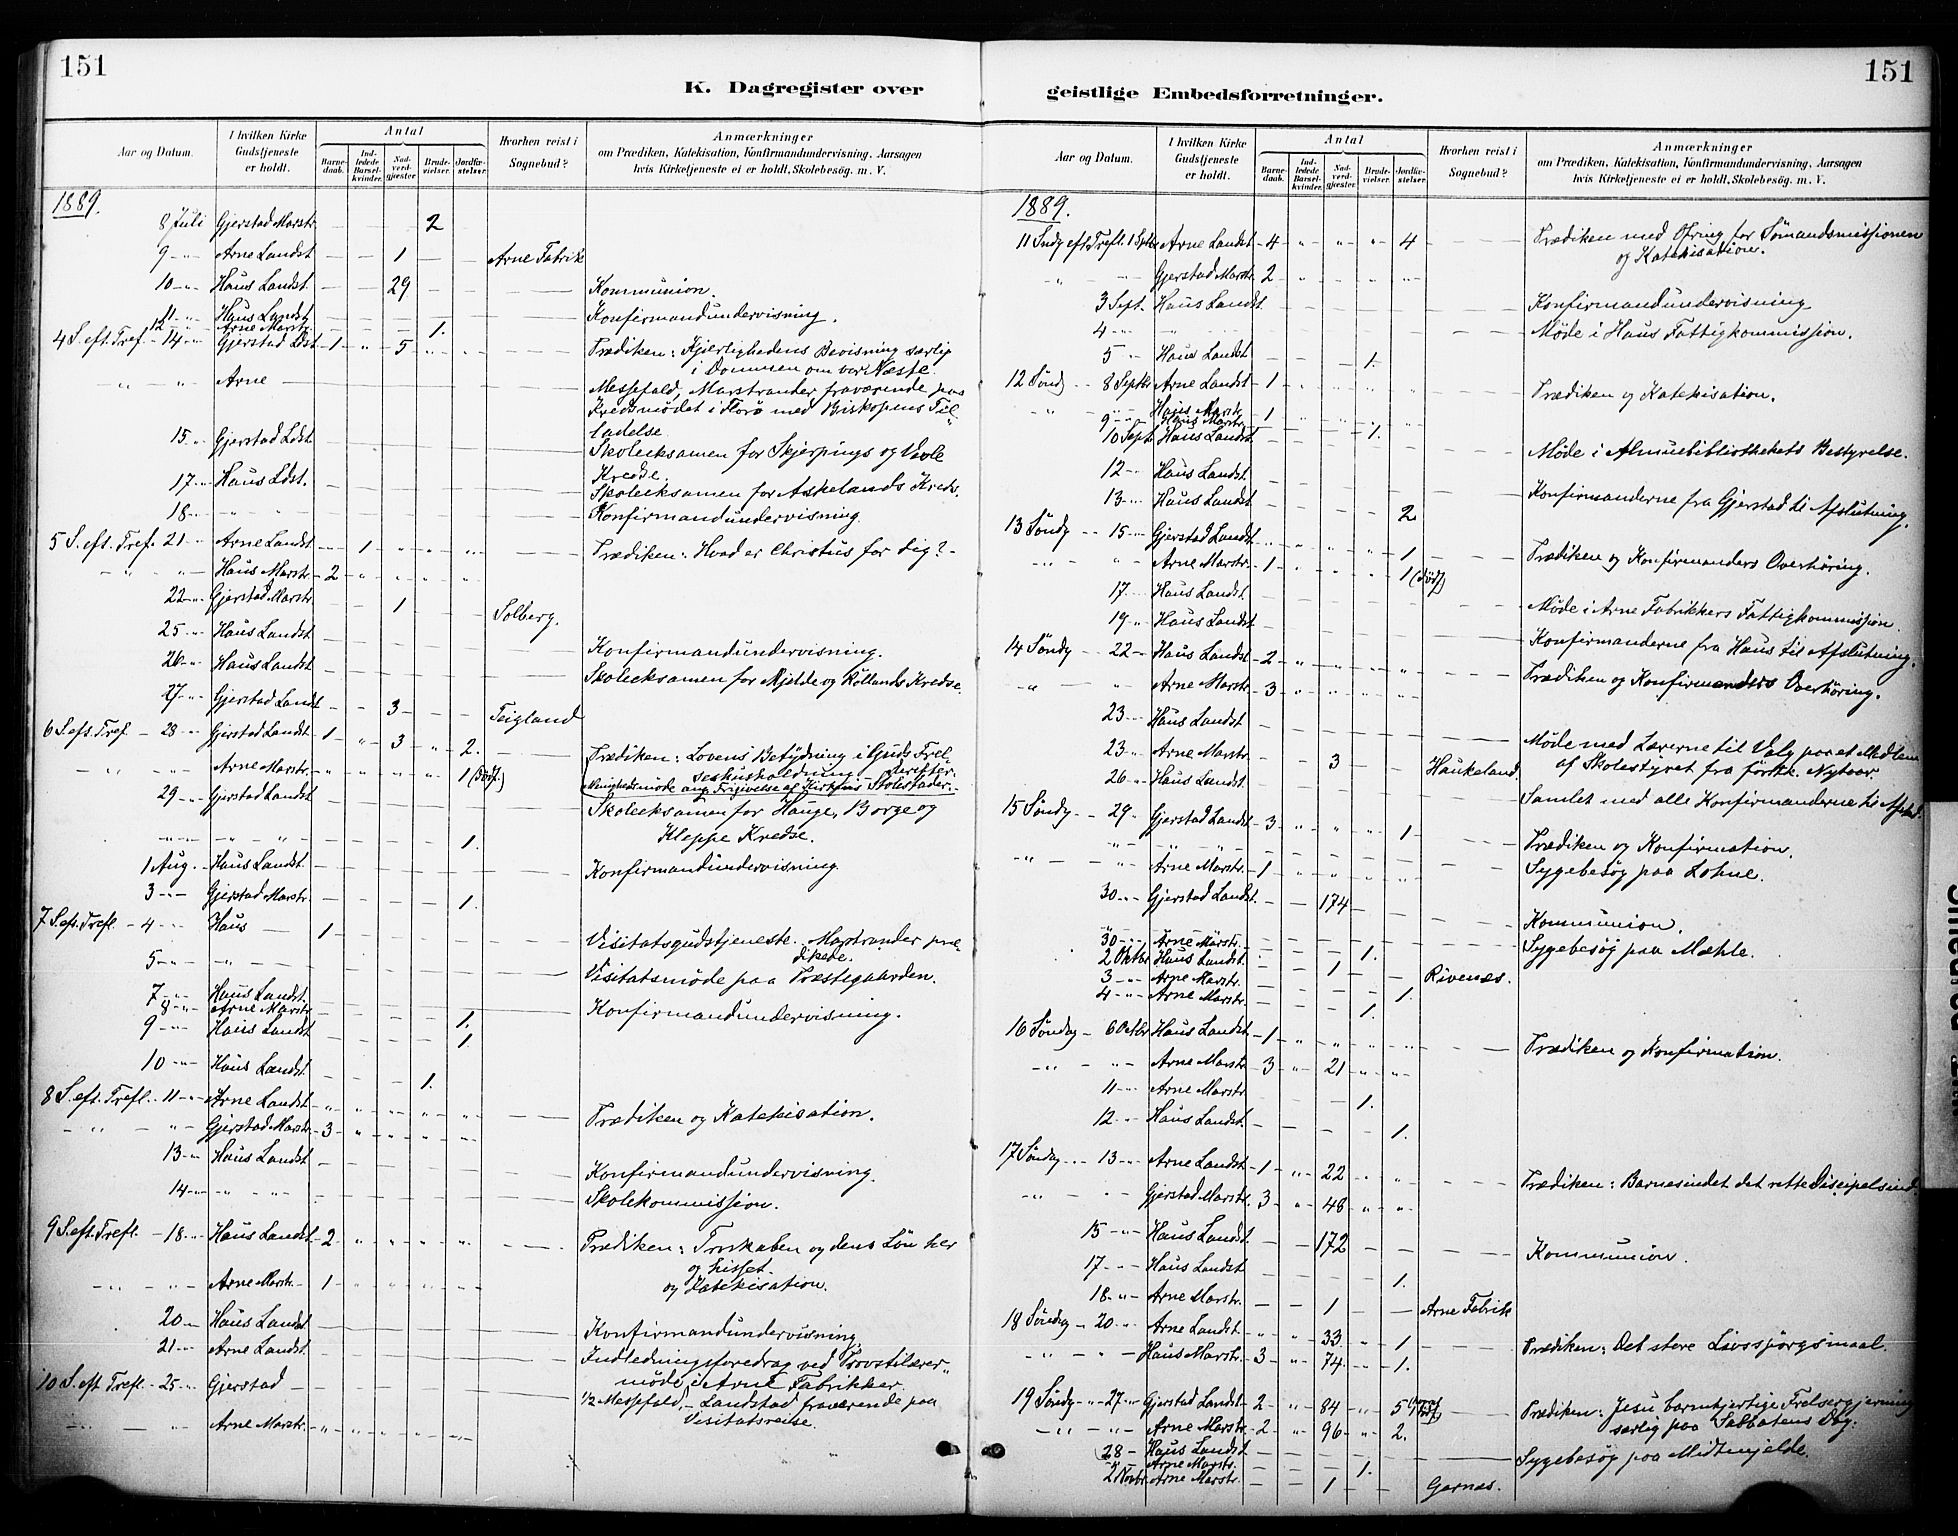 151
K. Dagregister over
Aar og Datum.
I hvilken Kirke Gudstjeneste er holdt.
Antal
Barnedaab.
Indledede Barselkvinder.
Nadverdgjester
Brudevielser.
Jordfæstelser.
Hvorhen reist i Sognebud?
Anmærkninger
om Prædiken, Katekisation, Konfirmandundervisning, Aarsagen
hvis Kirketjeneste ei er holdt, Skolebesøg. m. V.
1889.
8 Juli Gjerstad Marstr. 2
9 -"- Arne Landst. — — 1 — — Arne Fabrik
10 -"- Haus Landst. — — 29 — — — Kommunion.
11 " Haus Landst. — — — — — — Konfirmandundervisning.
12 -"- Arne Marstr. — — — 1.
4 S. eft. Tref. - 14 -"- Gjerstad Ldst. 1 " 5 " " — Prædiken: Kjærlighedens Bevisning særlig
i Dommen om vor Næste.
" " Arne — Messefald, Marstrander fraværende paa
Kredsmødet i Florø med Biskopens Til-
ladelse
15 " Gjerstad Ldst. — Skoleeksamen for Skjerpings og Vavle
Kredse.
17 -"- Haus Ldst. — Skoleeksamen for Askelands Kreds.
18 -"- " " — Konfirmandundervisning.
5 S. eft. Tref. 21 -"- Arne Landst. " 1 " " " — Prædiken: Hvad er Christus for dig? -
" " Haus Marstr. 2 " " " "
22 -"- Gjerstad Marstr. — — 1 — — Solberg.
25 -"- Haus Landst. — Konfirmandundervisning.
26 -"- Haus Landst. — Skoleeksamen for Mjelde og Rollands Kredse.
27 -"- Gjerstad Landst. — — 3 — — Teigland
6 S. eft. Tref. - 28 -"- Gjerstad Landst. 1 " 3 " 2. — Prædiken: Lovens Betydning i Guds Frel-
seshusholdning - derefter
" " Arne Marstr. " " " " 1 (dødf.) Menighedsmøde ang. Frigivelse af Kirkens Stolestader.
29 -"- Gjerstad Landst. — Skoleeksamen for Hauge, Borge og
Kleppe Kredse.
" " " " — — — — 1.
1 Aug. Haus Landst. — Konfirmandundervisning.
3 -"- Gjerstad Marstr. — — — — 1.
7 S. eft. Trefl. - 4 -"- Haus — 1 — Visitatsgudstjeneste. Marstrander præ-
dikede.
5 -"- " — Visitatsmøde paa Præstegaarden.
7 -"- Haus Landst. — Konfirmandundervisning.
8 -"- Arne Marstr. — — — — 1.
9 -"- Haus Landst. — — — — 1.
10 -"- Haus Landst. — — — 1.
8 S. eft. Trefl. - 11 -"- Arne Landst. " " " " " — Prædiken og Katekisation.
" " Gjerstad Marstr. 3 " " " "
13 -"- Haus Landst. — Konfirmandundervisning.
14 -"- " " — Skolekommissjon.
9 S. eft. Trefl. - 18 -"- Haus Landst. 2 " " " " — Prædiken: Troskaben og dens Løn her
og hisset.
" " Arne Marstr. 1 " " " " og Katekisation.
20 -"- Haus Landst. — Konfirmandundervisning
21 -"- Arne Landst. — Indledningsforedrag ved Provstilærer-
møde i Arne Fabrikker.
10 S. eft. Trefl. - 25 -"- Gjerstad — ½ Messefald, - Landstad fraværende paa
Visitatsreise.
" " Arne Marstr. " " " " "
151
geistlige Embedsforretninger.
Aar og Datum.
I hvilken Kirke Gudstjeneste er holdt.
Antal
Barnedaab.
Indledede Barselkvinder.
Nadverdgjester
Brudevielser.
Jordfæstelser.
Hvorhen reist i Sognebud?
Anmærkninger
om Prædiken, Katekisation, Konfirmandundervisning, Aarsagen
hvis Kirketjeneste ei er holdt, Skolebesøg. m. V.
1889.
11 Sndg eft. Trefl. 1 Septbr Arne Landst. 4 " " " 4 — Prædiken med Ofring for Sømandsmissjonen
og Katekisation.
" " Gjerstad Marstr. 2 " " " "
3 Sept. Haus Landst. — Konfirmandundervisning
4 -"- " — Møde i Haus Fattigkommissjon.
5 " Haus Landst. — — — 1.
12 Søndg - 8 Septbr Arne Landst. 1 " " " " — Prædiken og Katekisation.
" " Haus Marstr. 1 " " " "
9 -"- Haus Marstr. — — — 1.
10 Sept. Haus Landst. — Møde i Almuebibliothekets Bestyrelse.
12 -"- Haus Landst. — Konfirmanderne fra Gjerstad til Afslutning.
13 -"- Haus Landst. — — — — 2
13 Søndg - 15 -"- Gjerstad Landst. " " " " 1 — Prædiken og Konfirmanders Overhøring.
" " Arne Marstr. 1 " " " 1 (dødf.)
17 -"- Haus Landst. — Møde i Arne Fabrikkers Fattigkommissjon.
19 -"- Haus Landst. — Konfirmanderne fra Haus til Afslutning.
14 Søndg - 22 -"- Haus Landst. 2 " " " " — Prædiken og Konfirmanders Overhøring.
" " Arne Marstr. 3 " " " "
23 -"- Haus Landst. — Møde med Lærerne til Valg paa et Medlem
af Skolestyret fra førstk. Nytaar.
23 -"- Arne Marstr. — — 3 — — Haukeland.
26 -"- Haus Landst. — Samlet med alle Konfirmanderne til Afsked.
15 Søndg - 29 " Gjerstad Landst. 3 " " " 1. — Prædiken og Konfirmation.
" " " — Sygebesøg paa Lohne.
" " Arne Marstr. 1 " " " "
30 -"- Gjerstad Landst. — — 174 — — — Kommunion.
" " — Sygebesøg paa Mæhle.
30 -"- Arne Marstr. — — — 1.
2 Oktbr Haus Landst. — — 1 — — Rivenæs.
3 -"- Arne Marstr. — — — — 1.
4 -"- Arne Marstr. — — — 1.
16 Søndag - 6 Octbr Haus Landst. 1 " " " " — Prædiken og Konfirmation.
" " Arne Marstr. 3 " 21 " "
11 -"- Arne Marstr. — — — 1.
12 -"- Haus Landst. — — — — 1.
17 Søndag - 13 -"- Arne Landst. 1 " 22 " " — Prædiken: Barnesindet det rette Discipelsind.
" " Gjerstad Marstr. 3 " 48 " "
15 -"- Haus Landst. — — 172 — — — Kommunion.
17 -"- Haus Landst. — — — — 1.
18 -"- Arne Marstr. — — 1 — — Arne Fabrik
18 Søndag - 20 -"- Arne Landst. " " 33 " 1 — Prædiken: Det store Livsspørgsmaal.
" " Haus Marstr. 3 " 74 " 1.
19 Søndg - 27 -"- Gjerstad Landst. 2 " 84 " 5 — Prædiken: Jesu barmhjertige Frelsergjerning
særlig paa Sabbatens Dag.
" " Arne Marstr. 2 " 96 " 2.
28 - Haus Landst. — Sygebesøg paa Midtmjelde.
" Arne Marstr. — — — 1.
2 Novbr. Arne Marstr. — — 1 — — Garnæs.